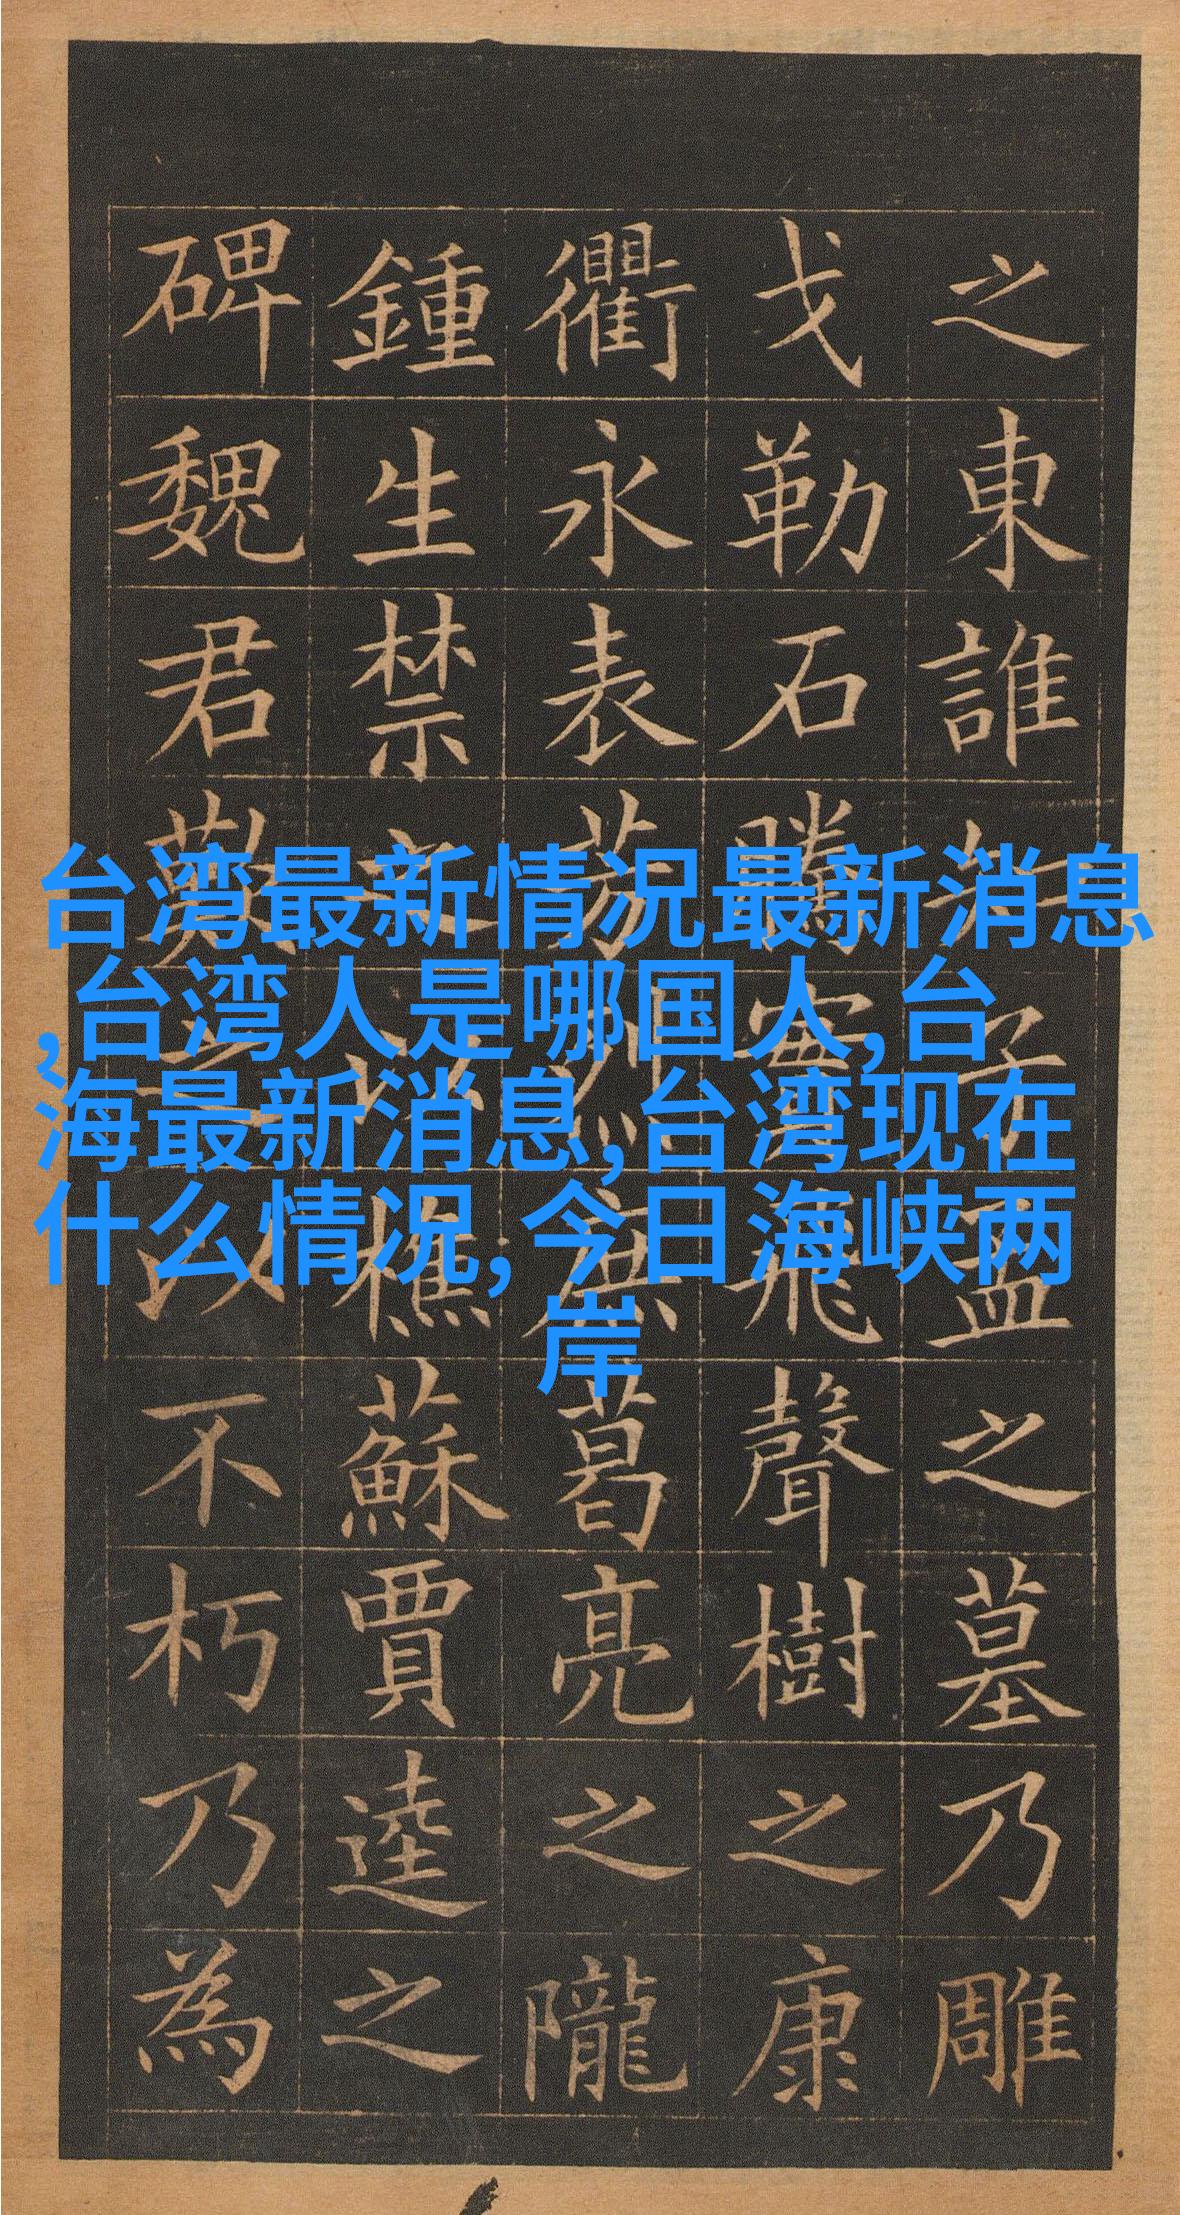 台湾最新情况最新消息
,台湾人是哪国人,台
海最新消息,台湾现在
什么情况,今日海峡两
岸
之東誰知子孟之墓乃雕
戈勒石騰實飛聲樹之康
衢永表芬烈庶葛亮之隴
鍾生禁之以樵蘇賈逵之
碑魏君歎之以不朽乃為